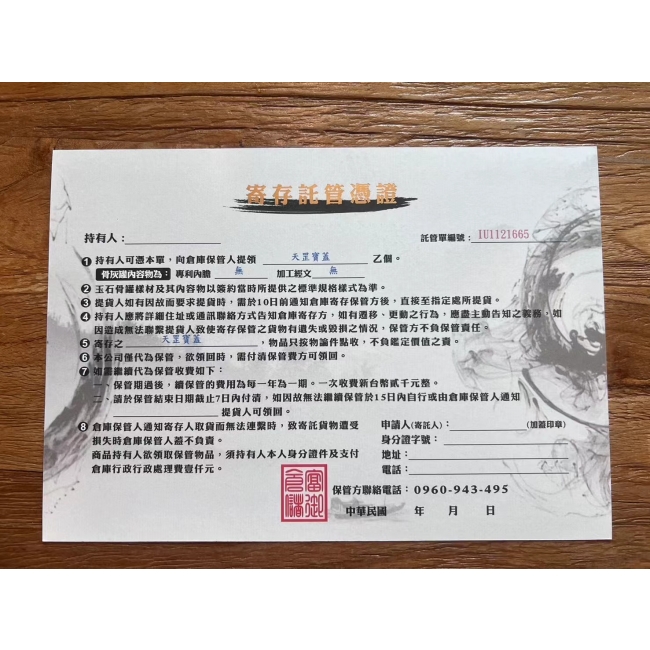 寄存託管憑證
持有人：
託管單編號：IU1121665
❶持有人可憑本單，向倉庫保管人提領 天罡寶蓋 乙個。
骨灰罐內容物為： 專利內膽 無 加工經文 無
❷玉石骨罐樣材及其內容物以簽約當時所提供之標準規格樣式為準。
❸提貨人如有因故而要求提貨時，需於10日前通知倉庫寄存保管方後，直接至指定處所提貨。
❹持有人應將詳細住址或通訊聯絡方式告知倉庫寄存方，如有遷移、更動之行為，應盡主動告知之義務，如
因造成無法聯繫提貨人致使寄存保管之貨物有遺失或毀損之情況，保管方不負保管責任。
❺寄存之 天罡寶蓋 ，物品只按物論件點收，不負鑑定價值之責。
❻本公司僅代為保管，欲領回時，需付清保管費方可領回。
❼如需繼續代為保管收費如下：
一、保管期過後，續保管的費用為每一年為一期。一次收費新台幣貳千元整。
二、請於保管結束日期截止7日內付清，如因故無法繼續保管於15日內自行或由倉庫保管人通知
提貨人可領回。
❽倉庫保管人通知寄存人取貨而無法連繫時，致寄託貨物遭受
損失時倉庫保管人蓋不負責。
商品持有人欲領取保管物品，須持有人本人身分證件及支付
倉庫行政行政處理費壹仟元。
申請人(寄託人)： (加蓋印章)
身分證字號：
地址：
電話：
保管方聯絡電話：0960-943-495
中華民國 年 月 日